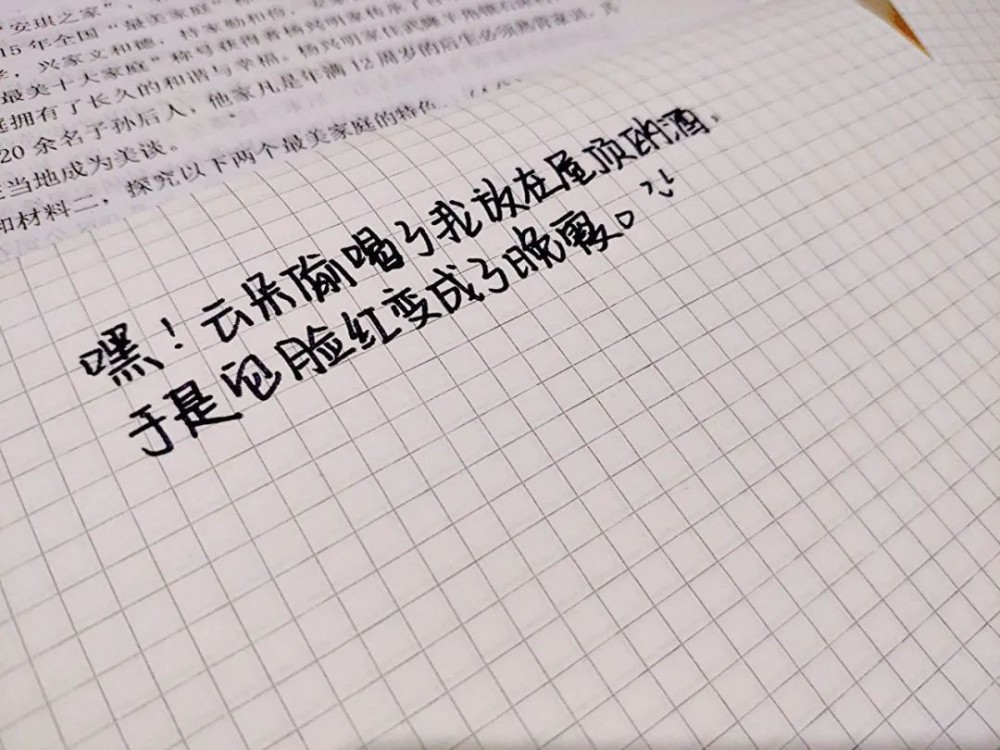 安琪之家”，
15年全国“最美家庭”
兴家文和德，持家勤和俭，
最美十大家庭”称号获得者杨兴明家
拥有了长久的和谐与幸福。杨兴明家住武隆羊角
20余名子孙后人，他家凡是年满12周岁的后生必须熟背家训，
当地成为美谈。
和材料二，探究以下两个最美家庭的特色。
嘿！云朵偷喝了我放在屋顶的酒，
于是它脸红变成了晚霞。